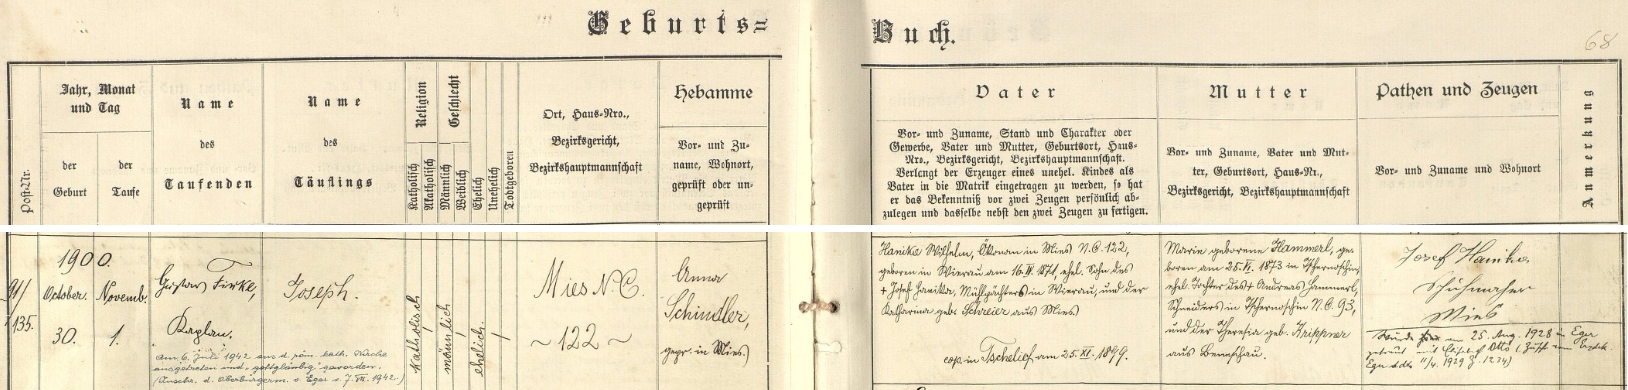 Geburts=
Buch.
68
Post-Nr.
Jahr, Monat
und Tag
der
Geburt
der
Taufe
Name
des
Taufenden
Name
des
Täuflings
Religion
Katholisch
Akatholisch
Geschlecht
Männlich
Weiblich
Ehelich
Unehelich
Todtgeboren
Ort, Haus-Nro.,
Bezirksgericht,
Bezirkshauptmannschaft
Hebamme
Vor- und Zu-
name, Wohnort,
geprüft oder un-
geprüft
Vater
Vor- und Zuname, Stand und Charakter oder
Gewerbe, Vater und Mutter, Geburtsort, Haus-
Nro., Bezirksgericht, Bezirkshauptmannschaft.
Verlangt der Erzeuger eines unehel. Kindes als
Vater in die Matrik eingetragen zu werden, so hat
er das Bekenntniß vor zwei Zeugen persönlich ab-
zulegen und dasselbe nebst den zwei Zeugen zu fertigen.
Mutter
Vor- und Zuname, Vater und Mut-
ter, Geburtsort, Haus-Nr.,
Bezirksgericht, Bezirkshauptmannschaft
Pathen und Zeugen
Vor- und Zuname und Wohnort
Anmerkung
1900.
91/
135.
October.
30.
Novemb.
1.
Gustav Türke,
Kaplan.
Am 6. Juli 1942 aus d. röm. kath. Kirche
ausgetreten und gottgläubig geworden.
(Zuschr. d. Oberbürgerm. v. Eger v. 7. VII. 1942.)
Joseph.
katholisch
männlich
ehelich.
Mies N.C.
~122~
Anna
Schindler,
gepr. in Mies.
Hanika Wilhelm, Ökonom in Mies N.C. 122,
geboren in Wierau am 16. IV. 1871, ehel. Sohn des
+ Josef Hanika, Mühlpächters in Wierau, und der
Katharina geb. Schreier aus Mies.
cop. in Tschelief am 25. XI. 1899.
Marie geborene Hammerl, ge-
boren am 25. VI. 1873 in Tschernoschin
ehel. Tochter des + Andreas Hammerl,
Schneiders in Tschernoschin N.C. 93,
und der Theresia geb. Krippner
aus Bernschau.
Josef Hanika
Schuhmacher
Mies
Wurde am 25. Aug. 1928 in Eger
getraut mit Otto
Eger 11/4. 1929 Z. 1224)